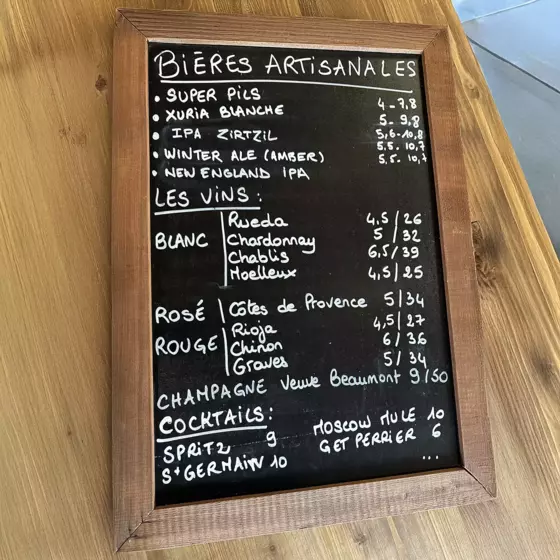 BIÈRES ARTISANALES
• SUPER PILS 4-7,8
• XURIA BLANCHE 5-9,8
• IPA ZIRTZIL 5,6-10,8
• WINTER ALE (AMBER) 5,5. 10,7
• NEW ENGLAND IPA 5,5. 10,7
LES VINS :
BLANC
Rueda 4,5/26
Chardonnay 5/32
Chablis 6,5/39
Moelleux 4,5/25
ROSÉ Côtes de Provence 5/34
ROUGE
Rioja 4,5/27
Chinon 6/36
Graves 5/34
CHAMPAGNE Veuve Beaumont 9/50
COCKTAILS :
SPRITZ 9 MOSCOW MULE 10
ST GERMAIN 10 GET PERRIER 6
...